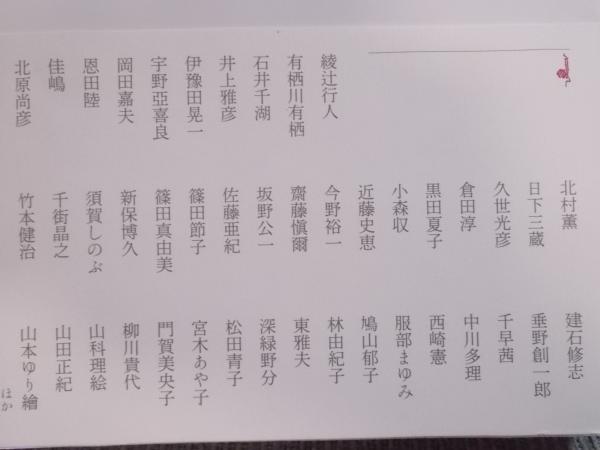 綾辻行人
有栖川有栖
石井千湖
井上雅彦
伊豫田晃一
宇野亞喜良
岡田嘉夫
恩田陸
佳嶋
北原尚彦
北村薫
日下三蔵
久世光彦
倉田淳
黒田夏子
小森収
近藤史恵
今野裕一
齋藤愼爾
坂野公一
佐藤亜紀
篠田節子
篠田真由美
新保博久
須賀しのぶ
千街晶之
竹本健治
建石修志
垂野創一郎
千早茜
中川多理
西崎憲
服部まゆみ
鳩山郁子
林由紀子
東雅夫
深緑野分
松田青子
宮木あや子
門賀美央子
柳川貴代
山科理絵
山田正紀
山本ゆり繪
ほか